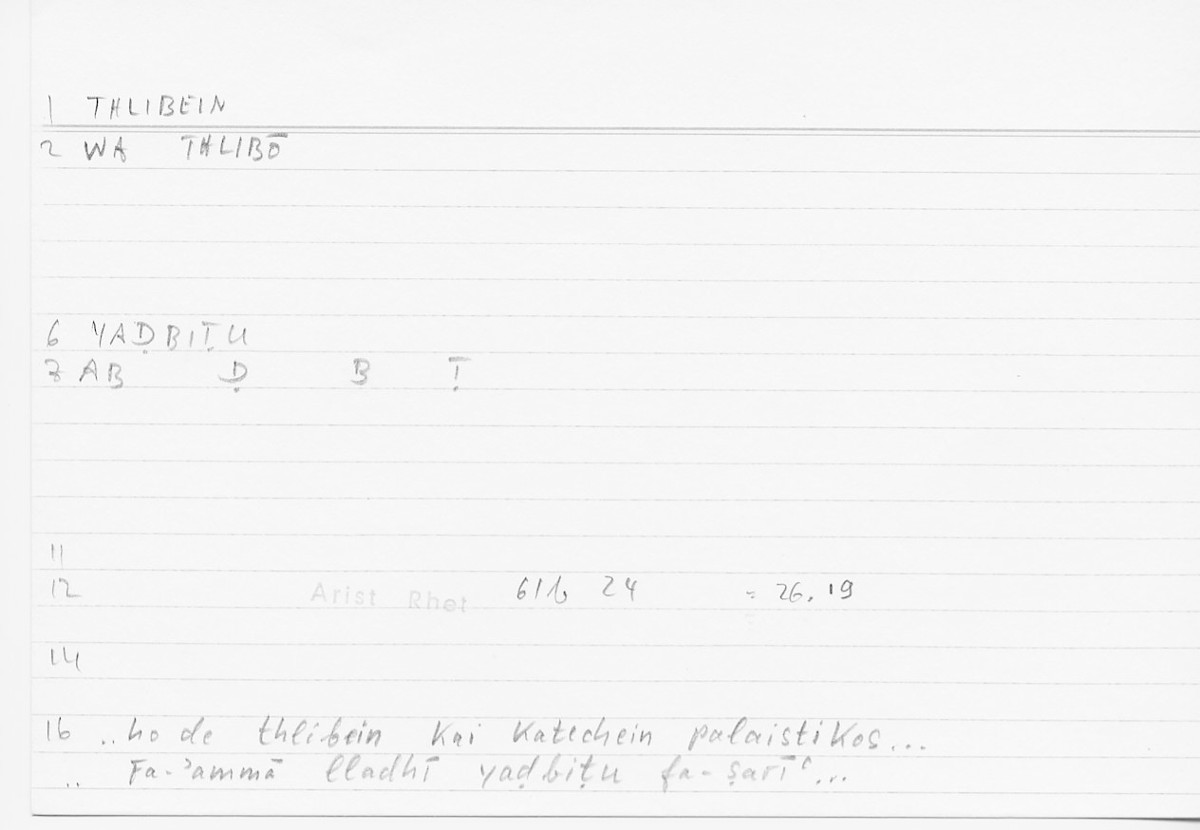 1 THLIBEIN
2 WA THLIBŌ
6 YAḌBIṬU
7 AB Ḍ B Ṭ
11
12 Arist Rhet 61b 24 = 26.19
14
16 ..ho de thlibein kai katechein palaistikos...
.. Fa-ʾammā lladhī yaḍbiṭu fa-ṣarīʿ...